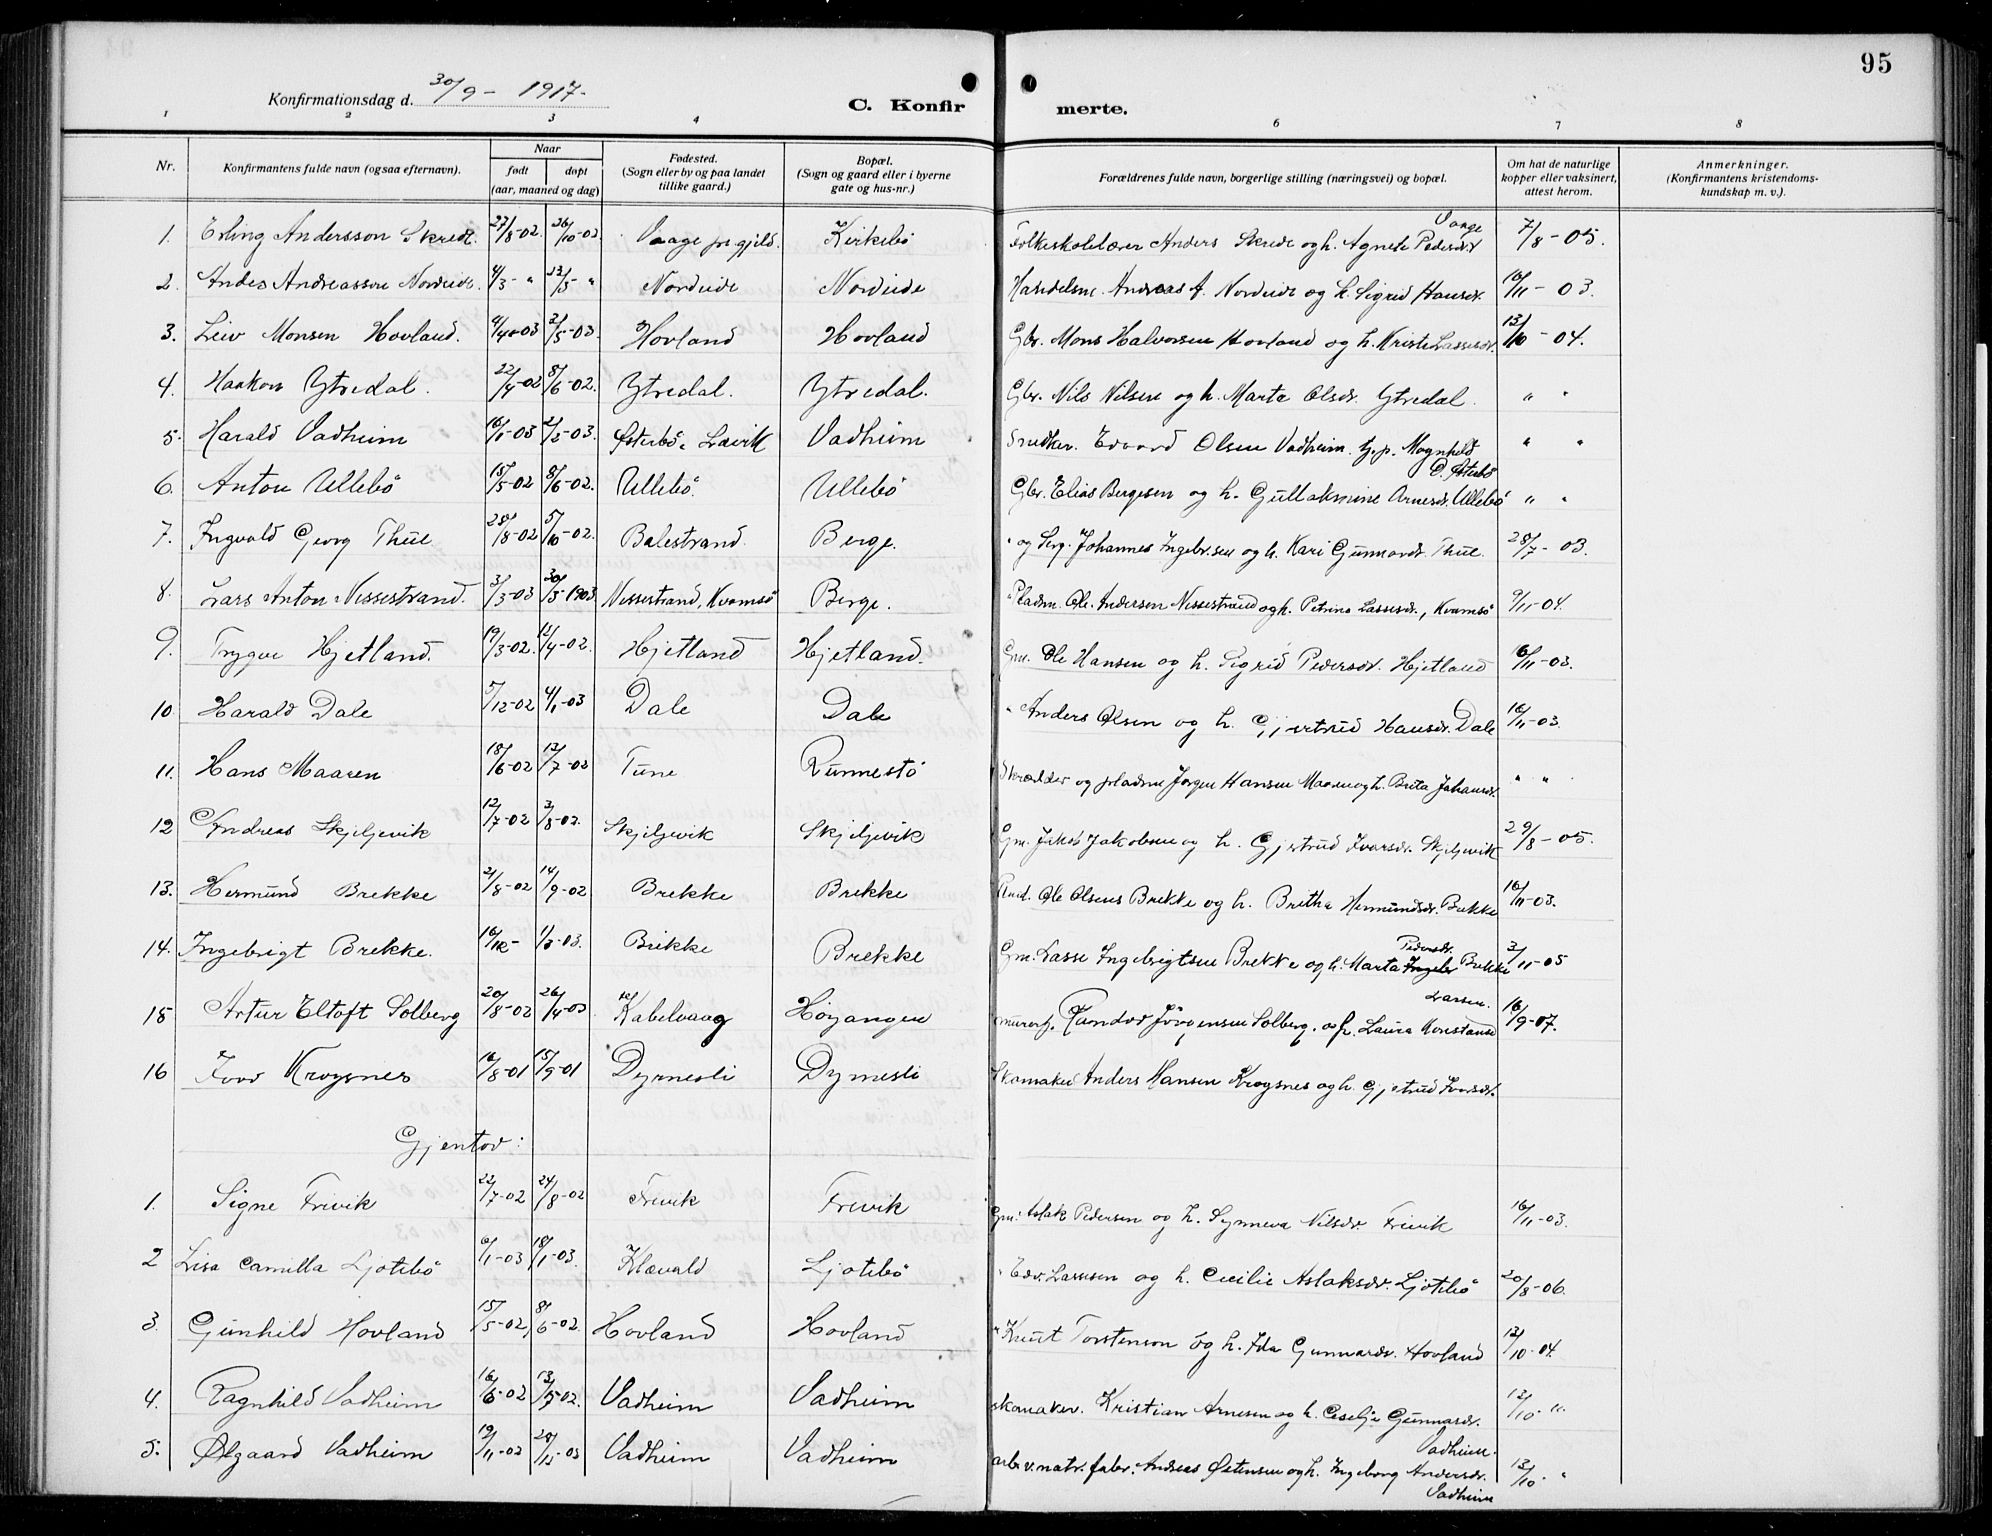 95
Konfirmationsdag d. 30/9 - 1917.
C. Konfirmerte.
1 2 3 4 6 7 8
Nr. Konfirmantens fulde navn (ogsaa efternavn). Naar født døpt (aar, maaned og dag) Fødested. (Sogn eller by og paa landet tillike gaard.) Bopæl. (Sogn og gaard eller i byerne gate og hus-nr.) Forældrenes fulde navn, borgerlige stilling (næringsvei) og bopæl. Om hat de naturlige kopper eller vaksinert, attest herom. Anmerkninger. (Konfirmantens kristendoms-kundskap m. v.).
1. Erling Andersson Skrede. 27/8-02. 26/10-02 Vaage pr.gjeld. Kirkebö Folkeskolelærer Anders Skrede og h. Agnete Pedersdt Vaage 7/8-05.
2. Andreasson Nordeide. 4/3- " " Nordeide Nordeide Handelsm. Andreas A. Nordeide og h. Sigrid Hansdr. 16/11-03.
3. Leiv Monsen Hovland. 4/4-03 2/5-03 Hovland Hovland Gbr. Mons Halvorsen Hovland og h. Kristi Lassesdr. 13/10-04.
4. Haakon Ytredal. 22/4-02 8/6-02. Ytredal. Ytredal. Gbr. Nils Nilsen og h. Marta Olsdr. Ytredal. " "
5. Harald Vadheim -03 -03. Østerbö, Lavik Vadheim Snedker. Edvard Olsen Vadheim. Magnhild O. Østerbö " "
6. Anton Ullebö 15/5-02 8/6-02. Ullebö. Ullebö Gbr. Elias Bergesen og h. Arnesdr. Ullebö " "
7. Ingvald Georg Thue 28/8-02 5/10-02. Balestrand. Berge. " og Johannes Ingebr.sen og h. Kari Gunnarsdr. Thue. 28/7-03.
8. Lars Anton Nessestrand. 3/3-03 30/3-1903 Nessestrand, Kvamsö Berge. Pladsm. Ole Andersen Nessestrand og h. Petrine Lassesdr., Kvamsö 9/11-04.
9. Trygve Hjetland. 19/3-02. 13/4-02. Hjetland Hjetland. Gm. Ole Hansen og h. Sigrid Pedersdr. Hjetland 16/11-03.
10. Harald Dale 5/12-02 4/1-03 Dale Dale " Anders Olsen og h. Gjertrud Hansdr. Dale 16/11-03.
11. Hans Maaren 18/6-02 13/7-02 Tune Rumestö Skrædder og pladsm Jørgen Hansen Maaren og h. Brita Johansdr. " "
12 Andreas Skjeljevik 12/7-02 3/8-02. Skjeljevik Skjeljevik Gm. Jakob Jakobsen og h. Gjertrud Ivarsdr. Skjeljevik 29/8-05.
13. Hermund Brekke 21/8-02 14/9-02 Brekke Brekke Ole Olsens Brekke og h. Britha Hermundsdr. Brekke 16/11-03.
14. Ingebrigt Brekke. 16/12- -03. Brekke Brekke Gm. Lasse Ingebrigtsen Brekke og h. Marta Pedersdr. Brekke 3/11-05
15 Artur Eltoft Solberg 20/8-02 26/4-03 Kabelvaag Höyanger murerf. Randor Jörgensen Solberg. og h. Laura Konstanse Larsen. 16/9-07.
16 Ivar Krogsnes 16/8-01 15/9-01 Dyrnesli Dyrnesli Skomaker Anders Hansen Krogsnes og h. Gjertrud Ivarsdr.
Gjentor:
1. Signe Frivik 22/7-02 24/8-02 Frevik Frevik Gm. Aslak Pedersen og h. Synneva Nilsdr. Frivik 16/11-03.
2 Lisa Camilla Ljotebö 6/1-03 18/1-03. Klævold Ljotebö " Edv. Lassesen og h. Cecilie Aslaksdr. Ljotebö 20/8-06.
3. Gunhild Hovland 15/5-02 8/6-02. Hovland Hovland " Knut Torstenson og h. Ida Gunnarsdr. Hovland 13/10-04.
4. Ragnhild Vadheim -02 -02. Vadheim Vadheim skomaker. Kristian Arnesen og h. Ceselje Gunnarsdr. Vadheim. 13/10- "
5. Ølgaard Vadheim 19/11-02 Vadheim Vadheim arb v. natr. fabr. Andreas Østensen og h. Ingeborg Andersdr. Vadheim 13/10- "